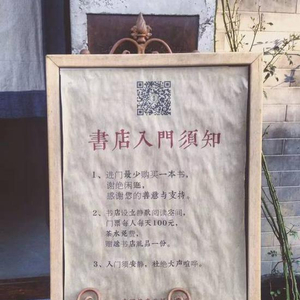 書店入門須知
1、进门最少购买一本书,
谢绝闲逛,
感谢您的善意与支持。
2、书店设立静默阅读空间,
门票每人每天100元,
茶水免费,
赠送书店礼品一份。
3、入门需安静,杜绝大声喧哗。